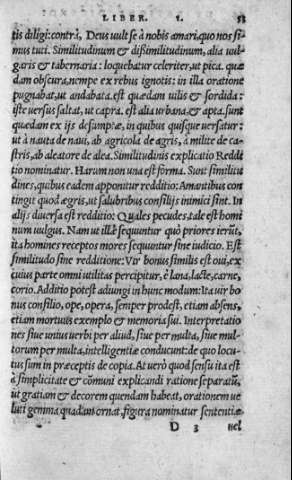 LIBER. I. 53
tis diligi: contrà, Deus uult se à nobis amari, quo nos si-
mus tuti. Similitudinum & dissimilitudinum, alia uul-
garis & tabernaria: loquebatur celeriter, ut pica. quæ-
dam obscura, nempe ex rebus ignotis: in illa oratione
pugnabat, ut andabata. est quædam uilis & sordida:
iste uersus saltat, ut capra. est alia urbana & apta. sunt
quædam ex ijs desumptæ, in quibus quisque uersatur:
ut à nauta de naui, ab agricola de agris, à milite de ca-
stris, ab aleatore de alea. Similitudinis explicatio Reddi
tio nominatur. Harum non una est forma. Sunt similitu
dines, quibus eadem apponitur redditio: Amantibus con
tingit quod ægris, ut salubribus consilijs inimici sint. In
alijs diuersa est redditio: Quales pecudes, tale est homi
num uulgus. Nam ut illæ sequuntur quò priores ierũt,
ita homines receptos mores sequuntur sine iudicio. Est
similitudo sine redditione: Vir bonus similis est oui, ex
cuius parte omni utilitas percipitur, è lana, lacte, carne,
corio. Additio potest adiungi in hunc modum: Ita uir bo
nus consilio, ope, opera, semper prodest, etiam absens,
etiam mortuus exemplo & memoria sui. Interpretatio
nes siue unius uerbi per aliud, siue per multa, siue mul-
torum per multa, intelligentiæ conducunt: de quo locu-
tus sum in præceptis de copia. At uerò quod sensu ita est
à simplicitate & cõmuni explicandi ratione separatũ,
ut gratiam & decorem quendam habeat, orationem ue
luti gemma quædam ornat, figura nominatur sententiæ
D 3 uel